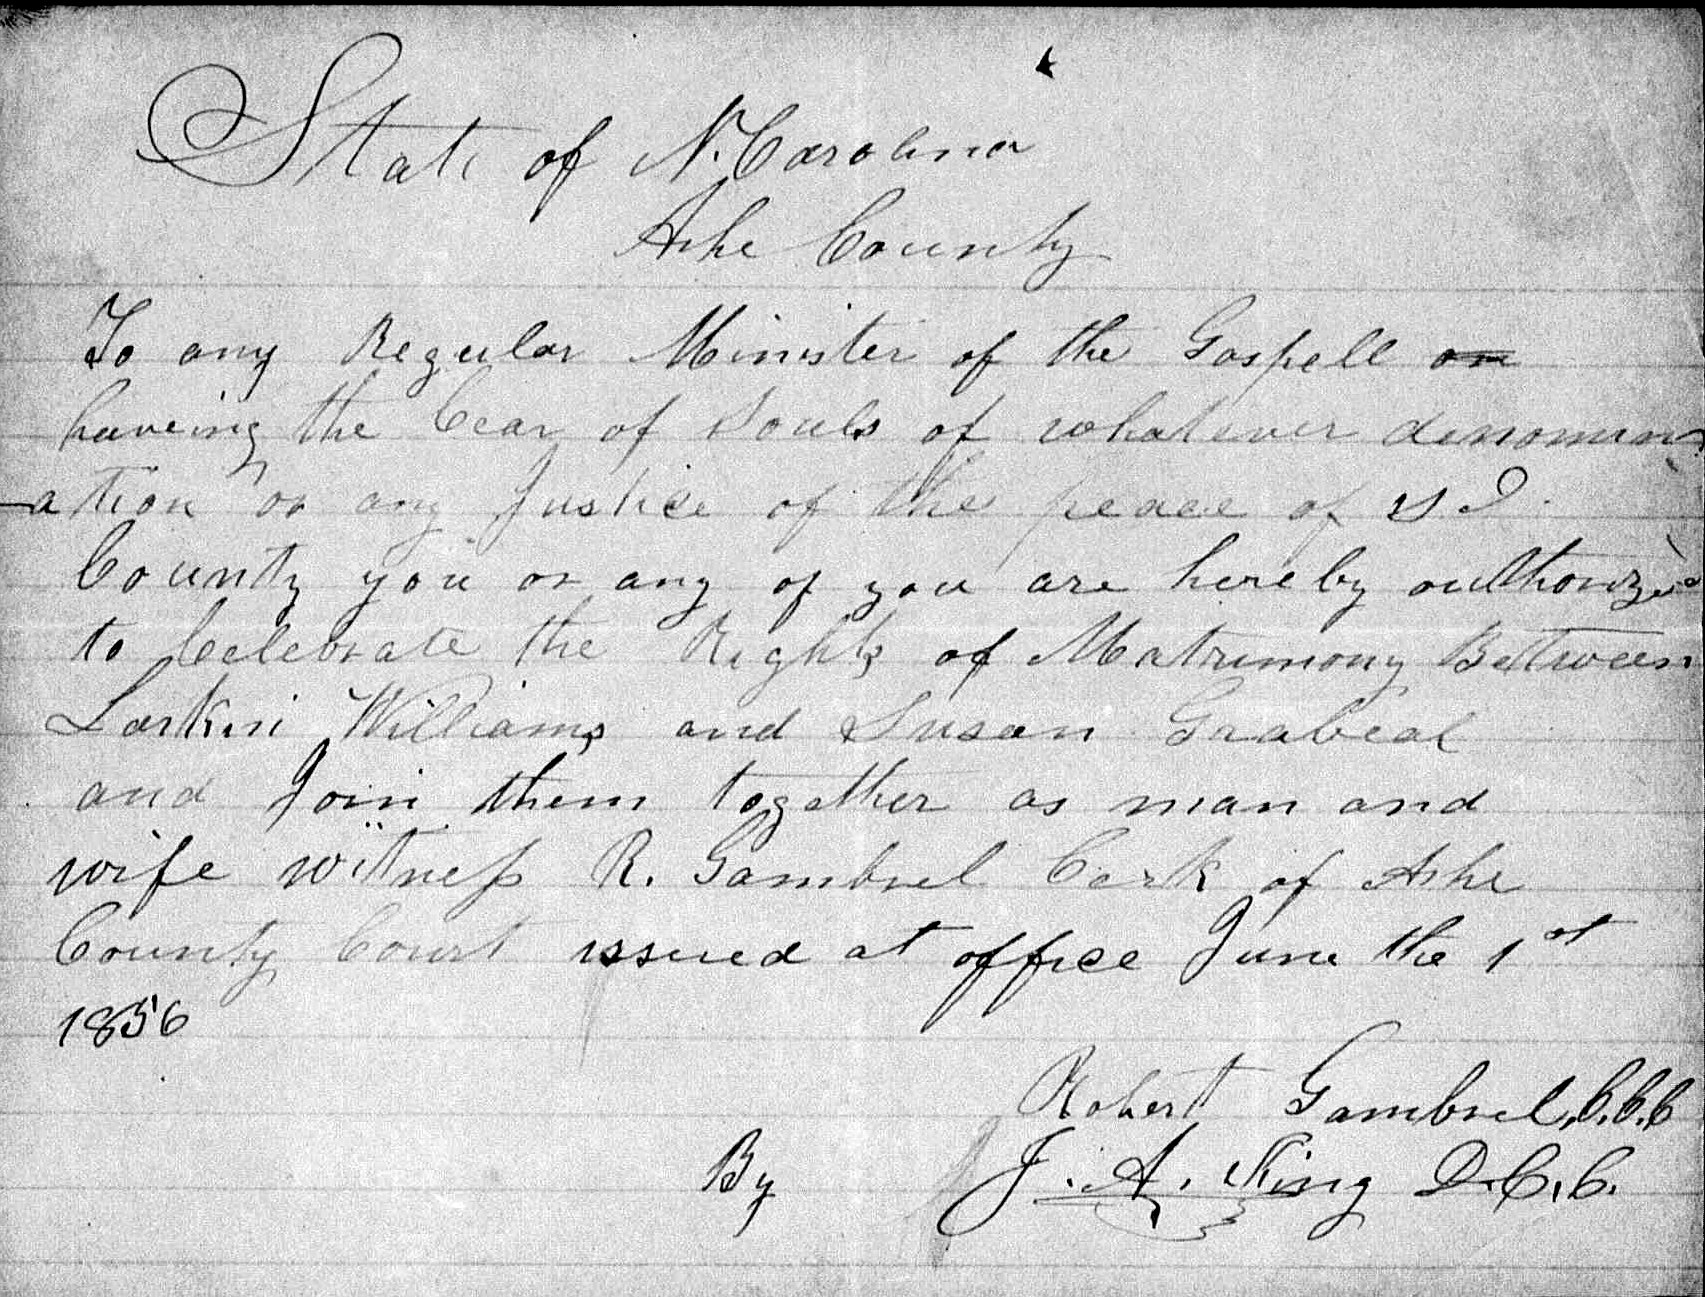 State of N. Carolina
Ashe County
To any Regular Minister of the Gospell or
haveing the Cear of Souls of whatever denomin
-ation or any Justice of the peace of s.d
County you or any of you are hereby authorized
to Celebrate the Rights of Matrimony Between
Larkin Williams and Susan Grabeal
and Join them together as man and
wife witness R. Gambrel Cerk of Ashe
County Court issued at office June the 1st
1856
Robert Gambrel, C.C.C
By J. A. King D.C.C.